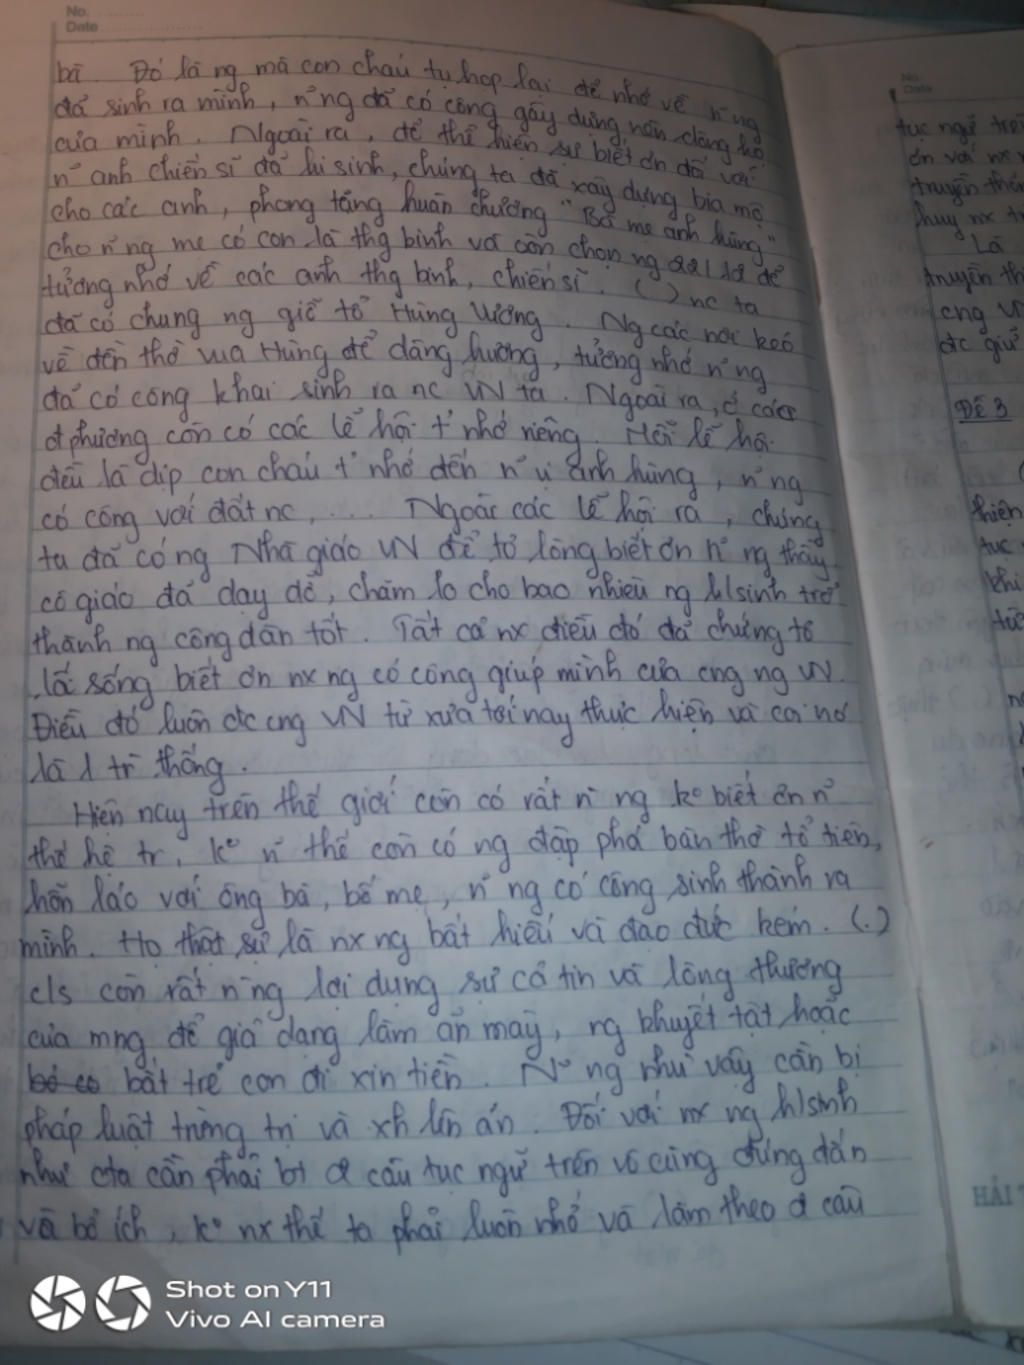 No.
Date
bà Đó là ng mà con cháu tụ họp lại để nhớ về n~ ng
đã sinh ra mình, n~ ng đã có công gây dựng nên dòng họ
của mình. Ngoài ra, để thể hiện sự biết ơn đối với
n~ anh chiến sĩ đã hi sinh, chúng ta đã xây dựng bia mộ
cho các anh, phong tặng huân chương "Bà mẹ anh hùng"
cho n~ ng mẹ có con là thg binh và còn chọn ng 22/12 để
tưởng nhớ về các anh thg binh, chiến sĩ. ( ) nc ta
đã có chung ng giỗ tổ Hùng Vương. Ng các nơi kéo
về đền thờ vua Hùng để dâng hương, tưởng nhớ n~ ng
đã có công khai sinh ra nc VN ta. Ngoài ra, ở các
đ phương còn có các lễ hội t' nhớ riêng. Mỗi lễ hội
đều là dịp con cháu t' nhớ đến n~ vị anh hùng, n~ ng
có công với đất nc, ... Ngoài các lễ hội ra, chúng
ta đã có ng Nhà giáo VN để tỏ lòng biết ơn n~ ng thầy
cô giáo đã dạy dỗ, chăm lo cho bao nhiêu ng h/sinh trở
thành ng công dân tốt. Tất cả nx điều đó đã chứng tỏ
lối sống biết ơn nx ng có công giúp mình của cng ng VN.
Điều đó luôn đc cng VN từ xưa tới nay thực hiện và coi nó
là 1 tr` thống.
Hiện nay trên thế giới còn có rất n` ng k° biết ơn n~
thế hệ tr', k° n~ thế còn có ng đập phá bàn thờ tổ tiên,
hỗn láo với ông bà, bố mẹ, n~ ng có công sinh thành ra
mình. Họ thật sự là nx ng bất hiếu và đạo đức kém. (.)
c/s còn rất n` ng lợi dụng sự cả tin và lòng thương
của mng để giả dạng làm ăn mày, ng khuyết tật hoặc
bắt trẻ con đi xin tiền. N~ ng như vậy cần bị
pháp luật trừng trị và xh lên án. Đối với nx ng h/sinh
như cta cần phải bt đ câu tục ngữ trên vô cùng đúng đắn
và bổ ích, k° nx thế ta phải luôn nhớ và làm theo đ câu
No.
Date
tục ngữ trên
ơn với nx
truyền thốn
huy nx tr
Là
truyền th
cng V
đc giữ
Đề 3
hiện
tục
khi
HẢI
Shot on Y11
Vivo AI camera